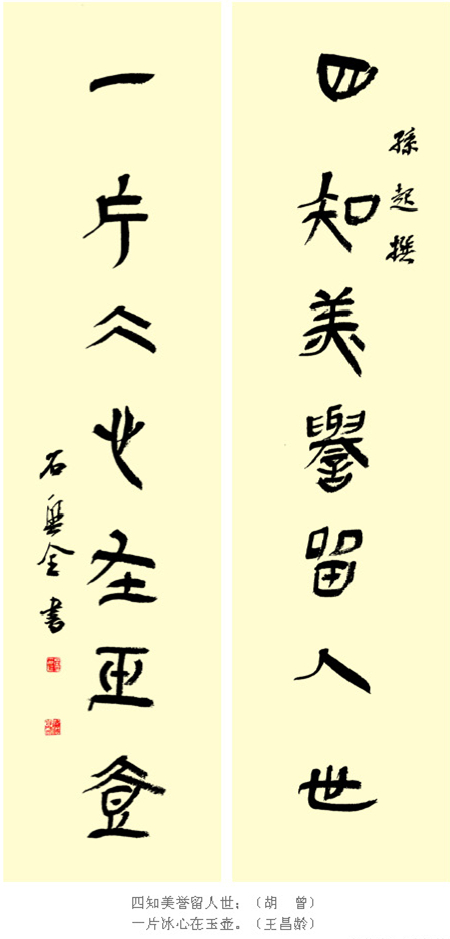 孫起撰
四知美譽留人世
一片仌心在玉壺
石興全書
四知美誉留人世；（胡　曾）
一片冰心在玉壶。（王昌龄）